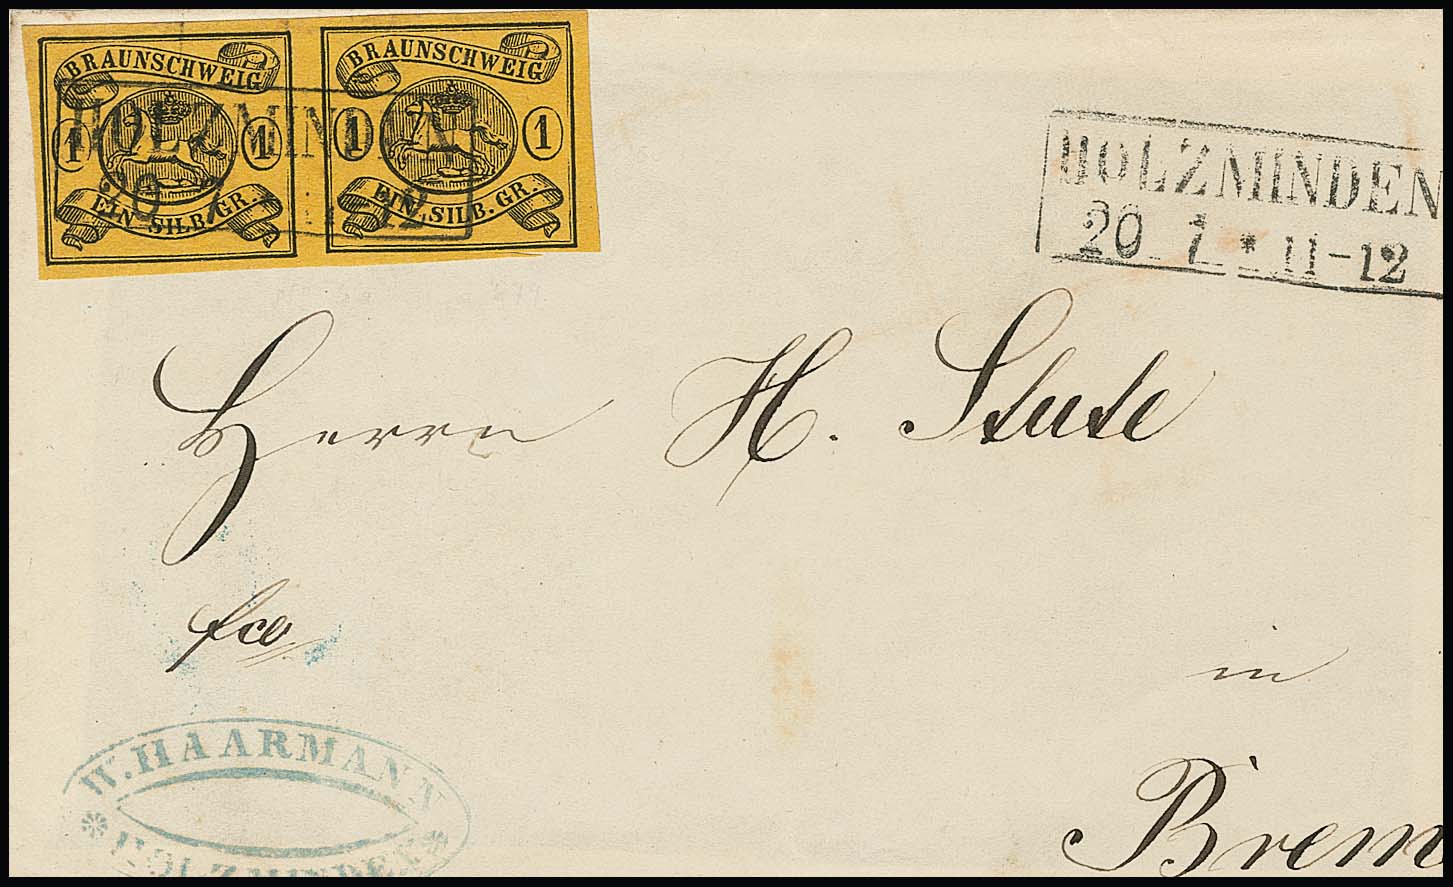 BRAUNSCHWEIG
1 1
EIN SILB. GR.
BRAUNSCHWEIG
1 1
EIN SILB. GR.
HOLZMINDEN
20 1 * 11-12
HOLZMINDEN
20 1 * 11-12
Herrn H. Stute
fco
in
Brem
W. HAARMANN
HOLZMINDEN